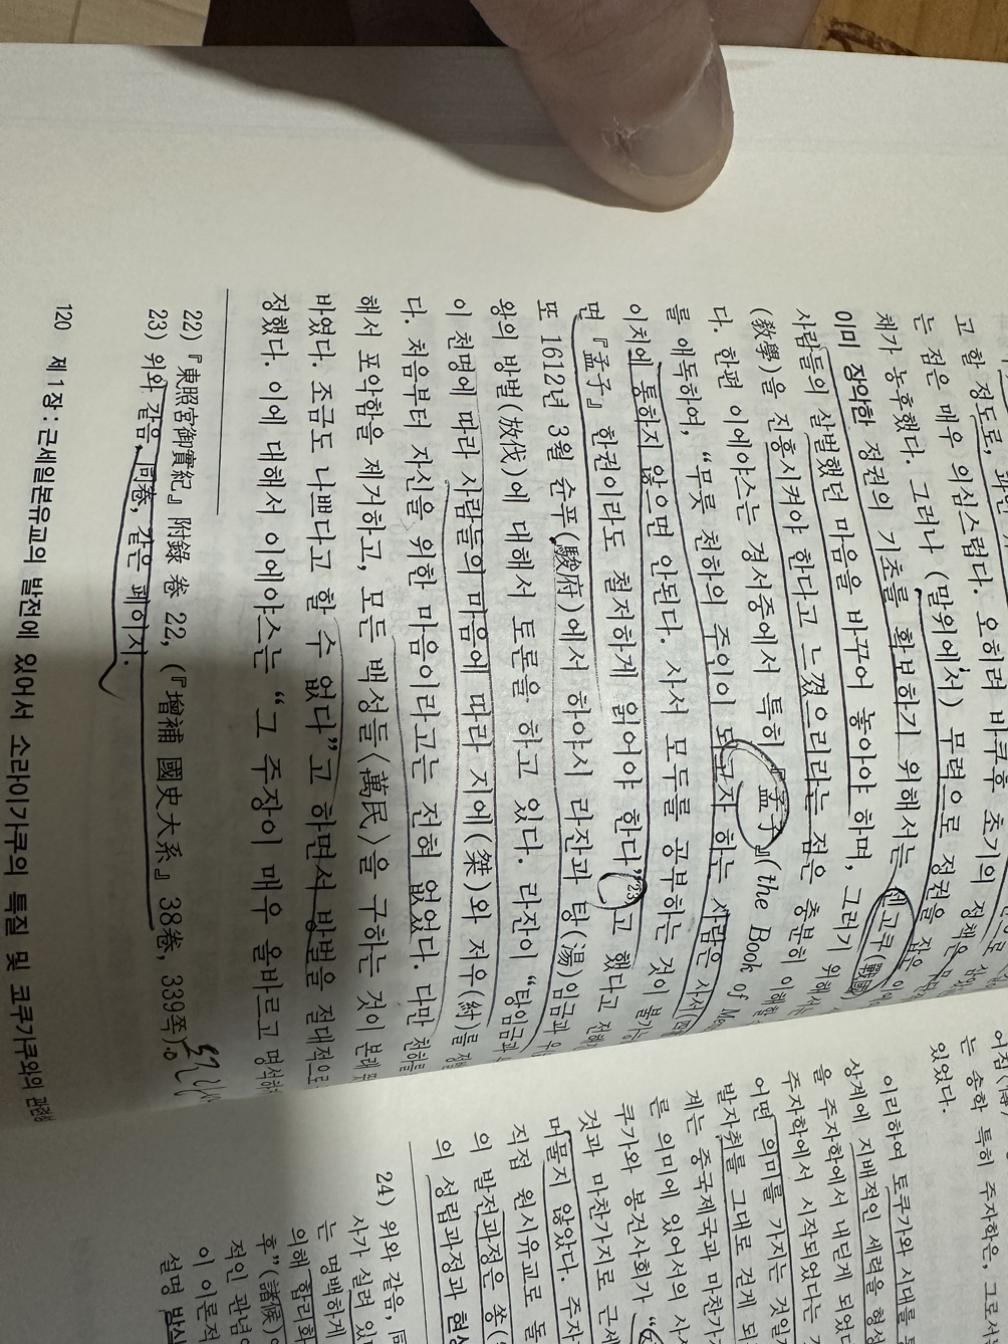 고 할 정도로,
는 점은 매우 의심스럽다. 오히려 바쿠후 초기의 정책은
채가 농후했다. 그러나 (말위에서) 무력으로 정권을 잡은
이미 장악한 정권의 기초를 확보하기 위해서는 센고쿠(戰國)
사람들의 살벌했던 마음을 바꾸어 놓아야 하며, 그러기 위해서는
(敎學)을 진흥시켜야 한다고 느꼈으리라는 점은 충분히 이해할
다. 한편 이에야스는 경서중에서 특히 『孟子』(the Book of
를 애독하여, “무릇 천하의 주인이 되고자 하는 사람은 사서
이치에 통하지 않으면 안된다. 사서 모두를 공부하는 것이 불가능
면 『孟子』 한권이라도 철저하게 읽어야 한다”23)고 했다고 전해
또 1612년 3월 순푸(駿府)에서 하야시 라잔과 탕(湯)임금과
왕의 방벌(放伐)에 대해서 토론을 하고 있다. 라잔이 “탕임금과
이 천명에 따라 사람들의 마음에 따라 지에(桀)와 저우(紂)를
다. 처음부터 자신을 위한 마음이라고는 전혀 없었다. 다만 천하를
해서 포악함을 제거하고, 모든 백성들〈萬民〉을 구하는 것이 본래
바였다. 조금도 나쁘다고 할 수 없다”고 하면서 방벌을 절대적으로
정했다. 이에 대해서 이에야스는 “그 주장이 매우 올바르고 명석하
22) 『東照宮御實紀』 附錄 卷 22, (『增補 國史大系』 38卷, 339쪽).
23) 위와 같음, 同卷, 같은 페이지.
120 제 1 장 : 근세일본유교의 발전에 있어서 소라이가쿠의 특질 및 코쿠가쿠와의 관련성
는 송학 특히 주자학은, 그로서
있었다.
이리하여 토쿠가와 시대를
상계에 지배적인 세력을 형성
을 주자학에서 내딛게 되었
주자학에서 시작되었다는
어떤 의미를 가지는 것일까
발자취를 그대로 걷게 되
계는 중국제국과 마찬가
른 의미에 있어서의 사
쿠가와 봉건사회가
것과 마찬가지로 근세
머물지 않았다. 주자
직접 원시유교로 돌
의 발전과정은 쏭
의 성립과정과 현상
24) 위와 같음, 同
사가 실려 있
는 명백하게
의해 합리화
후”(諸候)
적인 관념
이 이론적
설명 방식